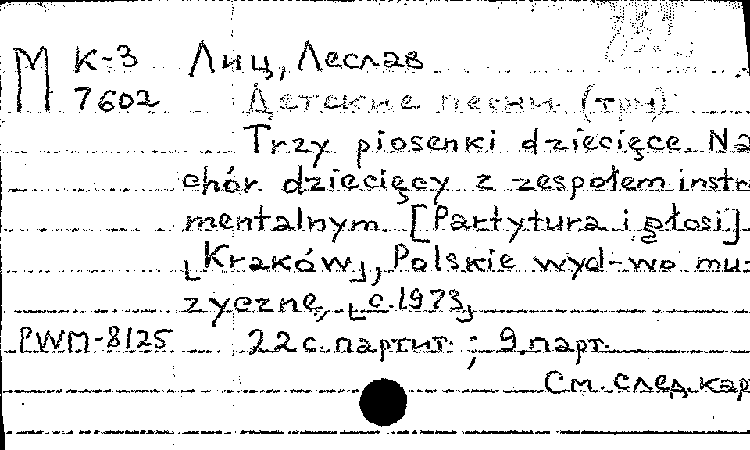 М К-3 Лиц, Леслав
7602 Детские песни (три)
Trzy piosenki dziecięce. Na
chór dziecięcy z zespołem instru
mentalnym [Partytura i głosi]
[Kraków], Polskie wyd-wo mu-
zyczne, [c.1973]
PWM-8125 22 с. партит. ; 9 парт.
См. след. кар